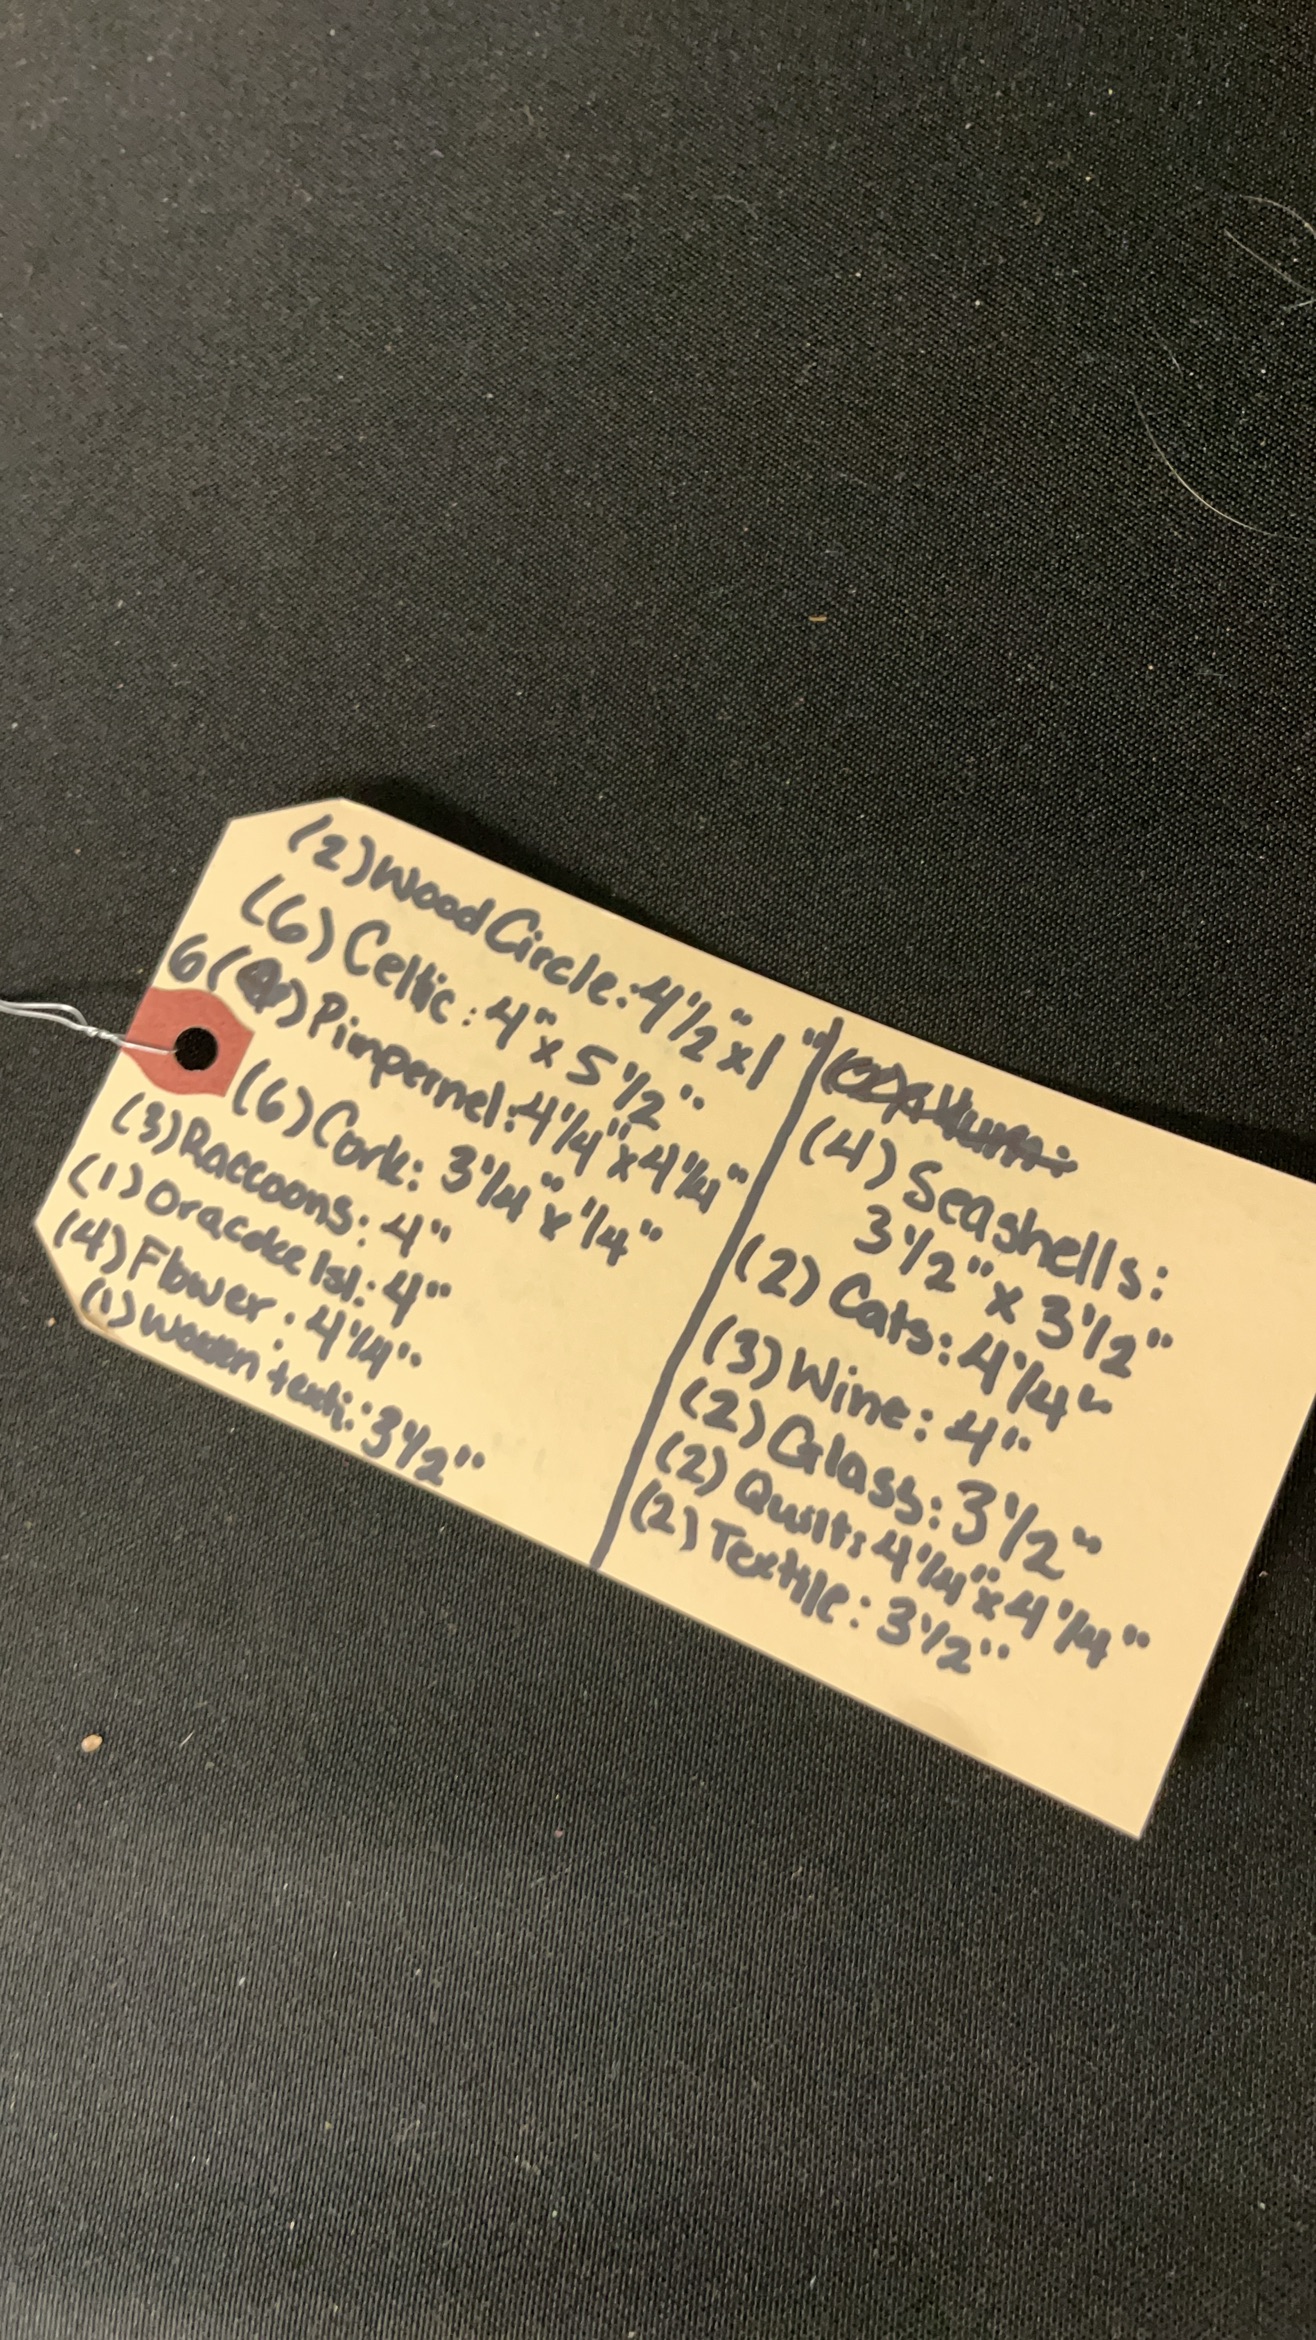 (2) Wood Circle: 4 1/2" x 1"
(6) Celtic: 4" x 5 1/2"
6 ( ) Pimpernel: 4 1/4" x 4 1/4"
(6) Cork: 3 1/4" x 1/4"
(3) Raccoons: 4"
(1) Oracoke Isl: 4"
(4) Flower: 4 1/4"
(1) Woven texti: 3 1/2"
(4) Seashells:
3 1/2" x 3 1/2"
(2) Cats: 4 1/4"
(3) Wine: 4"
(2) Glass: 3 1/2"
(2) Quilt: 4 1/4" x 4 1/4"
(2) Textile: 3 1/2"